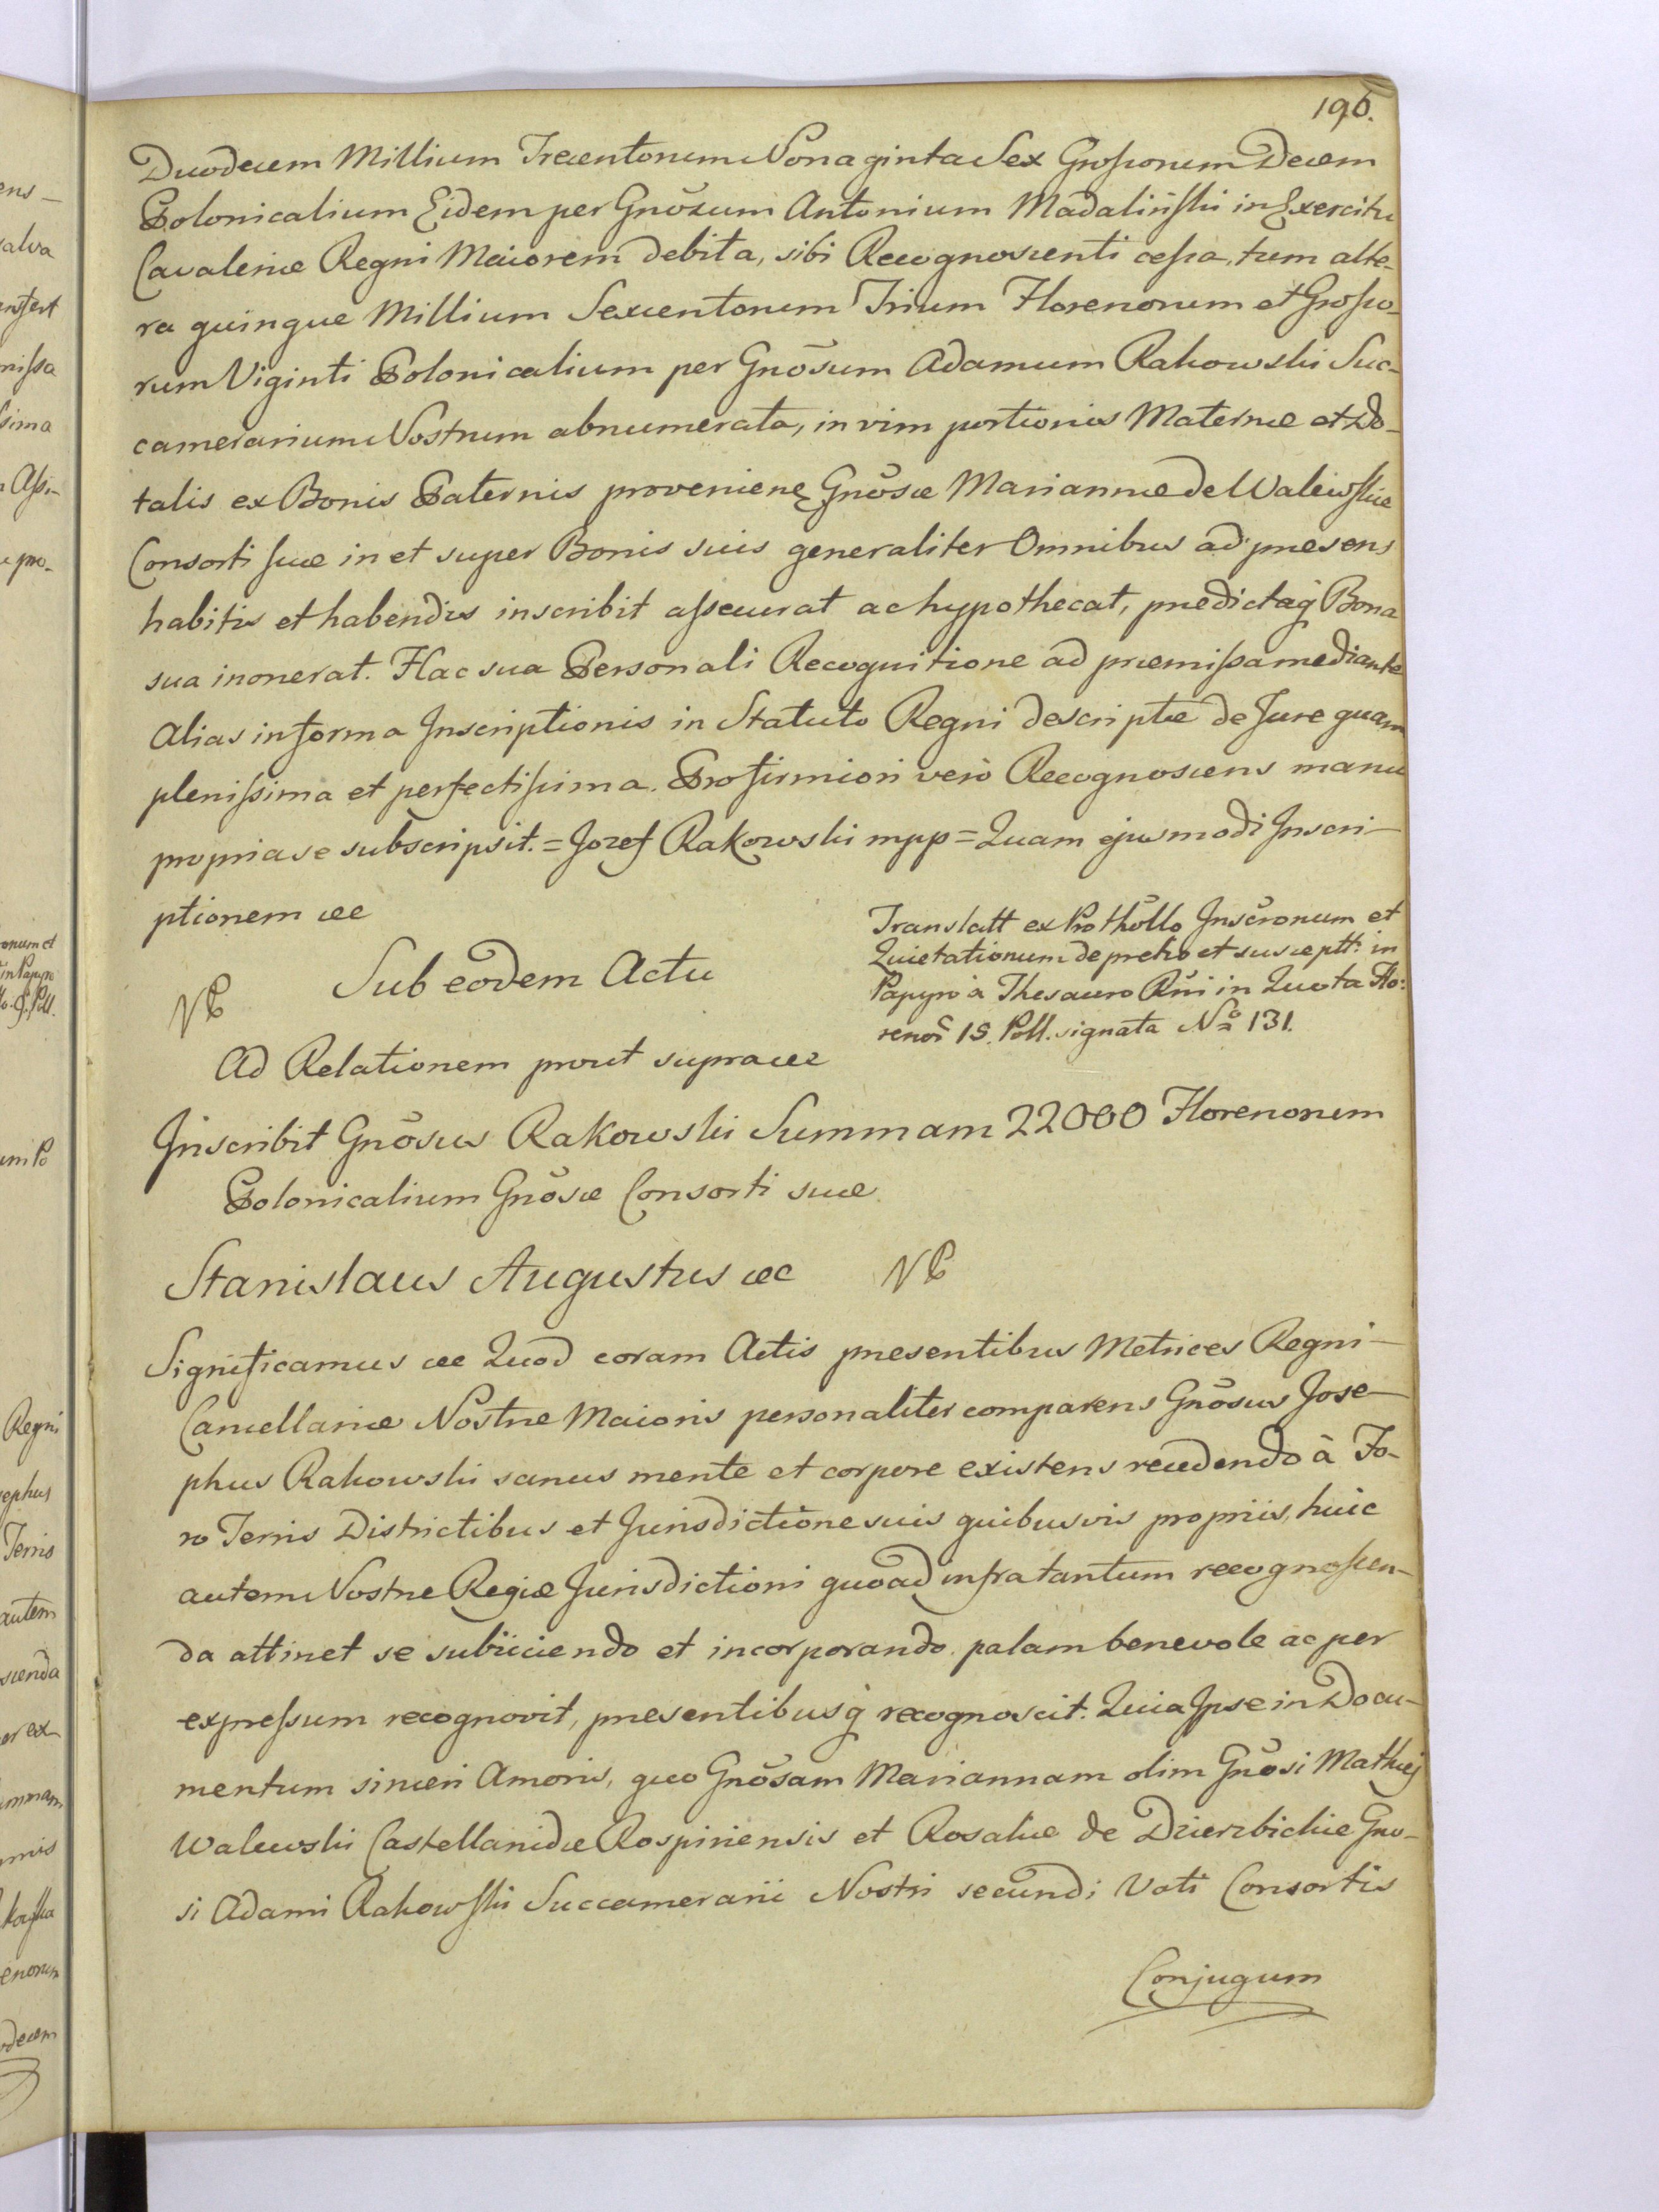 196.
Duodecem Millium Trecentorum Nonaginta Sex Grossorum Decem
Polonicalium Eidem per Gnõsum Antonium Madaliński in Exercitu
Cavaleriæ Regni Maiorem debita, sibi Recognoscenti cessa, tum alte-
ra quinque Millium Sexcentorum Trium Florenorum et Grosso-
rum Viginti Polonicalium per Gnõsum Adamum Rakowski Suc-
camerarium Nostrum abnumerata, in vim portionis Maternæ et Do-
talis ex Bonis Paternis proveniens Gnõsæ Mariannæ de Walewskie
Consorti suæ in et super Bonis suis generaliter Omnibus ad præsens
habitis et habendis inscribit assecurat ac hypothecat, prædictaq̃ Bona
sua inonerat. Hac sua Personali Recognitione ad præmissa mediante
Alias in forma Inscriptionis in Statuto Regni descriptæ de Jure quam
plenissima et perfectissima. Pro firmiori verò Recognoscens manu
propria se subscripsit. = Jozef Rakowski mpp = Quam ejusmodi Inscri-
ptionem etc
Translatt ex Prothõllo Inscr̃onum et
Quietationum de pretio et susceptt: in
Papyro à Thesauro Rñi in Quota Flo:
renor̃ 15. Poll. signata Nõ 131.
Sub eodem Actu
Ad Relationem prout supra etc
Inscribit Gnõsus Rakowski Summam 22000 Florenorum
Polonicalium Gnõsæ Consorti suæ
Stanislaus Augustus etc
Significamus etc Quod coram Actis præsentibus Metrices Regni
Cancellariæ Nostræ Maioris personaliter comparens Gnõsus Jose-
phus Rakowski sanus mente et corpore existens recedendo à Fo-
ro Terris Districtibus et Jurisdictione suis quibusvis propriis, huic
autem Nostræ Regiæ Jurisdictioni quoad infra tantum recognoscen-
da attinet se subiiciendo et incorporando palam benevole ac per
expressum recognovit, præsentibusq̃ recognoscit. Quia Ipse in Docu-
mentum sinceri Amoris, quo Gnõsam Mariannam olim Gnõsi Mathiej
Walewski Castellanidæ Rospiriensis et Rosaliæ de Dzierzbickie Gno-
si Adami Rakowski Succamerarii Nostri secundi Voti Consortis
Conjugum